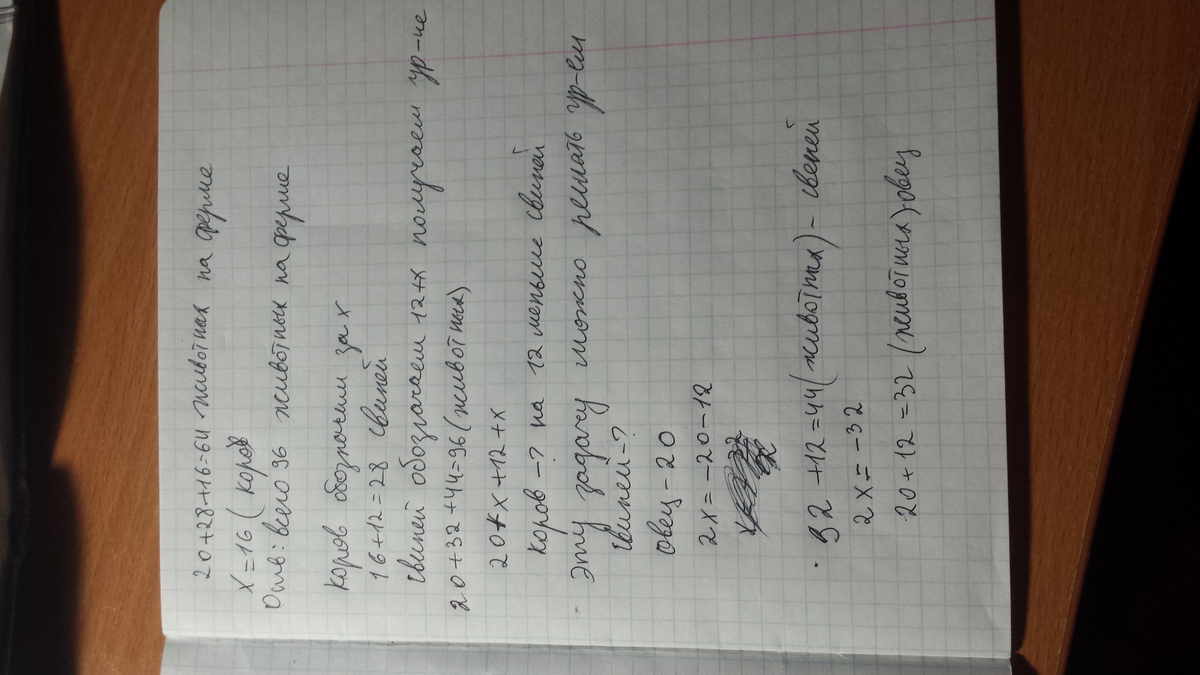 20+28+16=64 животных на ферме
x=16 (коров
Отв: всего 96 животных на ферме
Коров обозначим за x
16+12=28 свиней
Свиней обозначаем 12+x получаем ур-ие
20+32+44=96 (животных)
20+x+12+x
Коров -? на 12 меньше свиней
Эту задачу можно решать ур-ем
Свиней-?
Овец-20
2x=-20-12
32+12=44(животных)- свеней
2x=-32
20+12=32 (животных)-овец